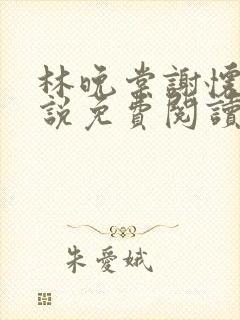 林晚棠謝懷
說免費閱讀
朱愛娥